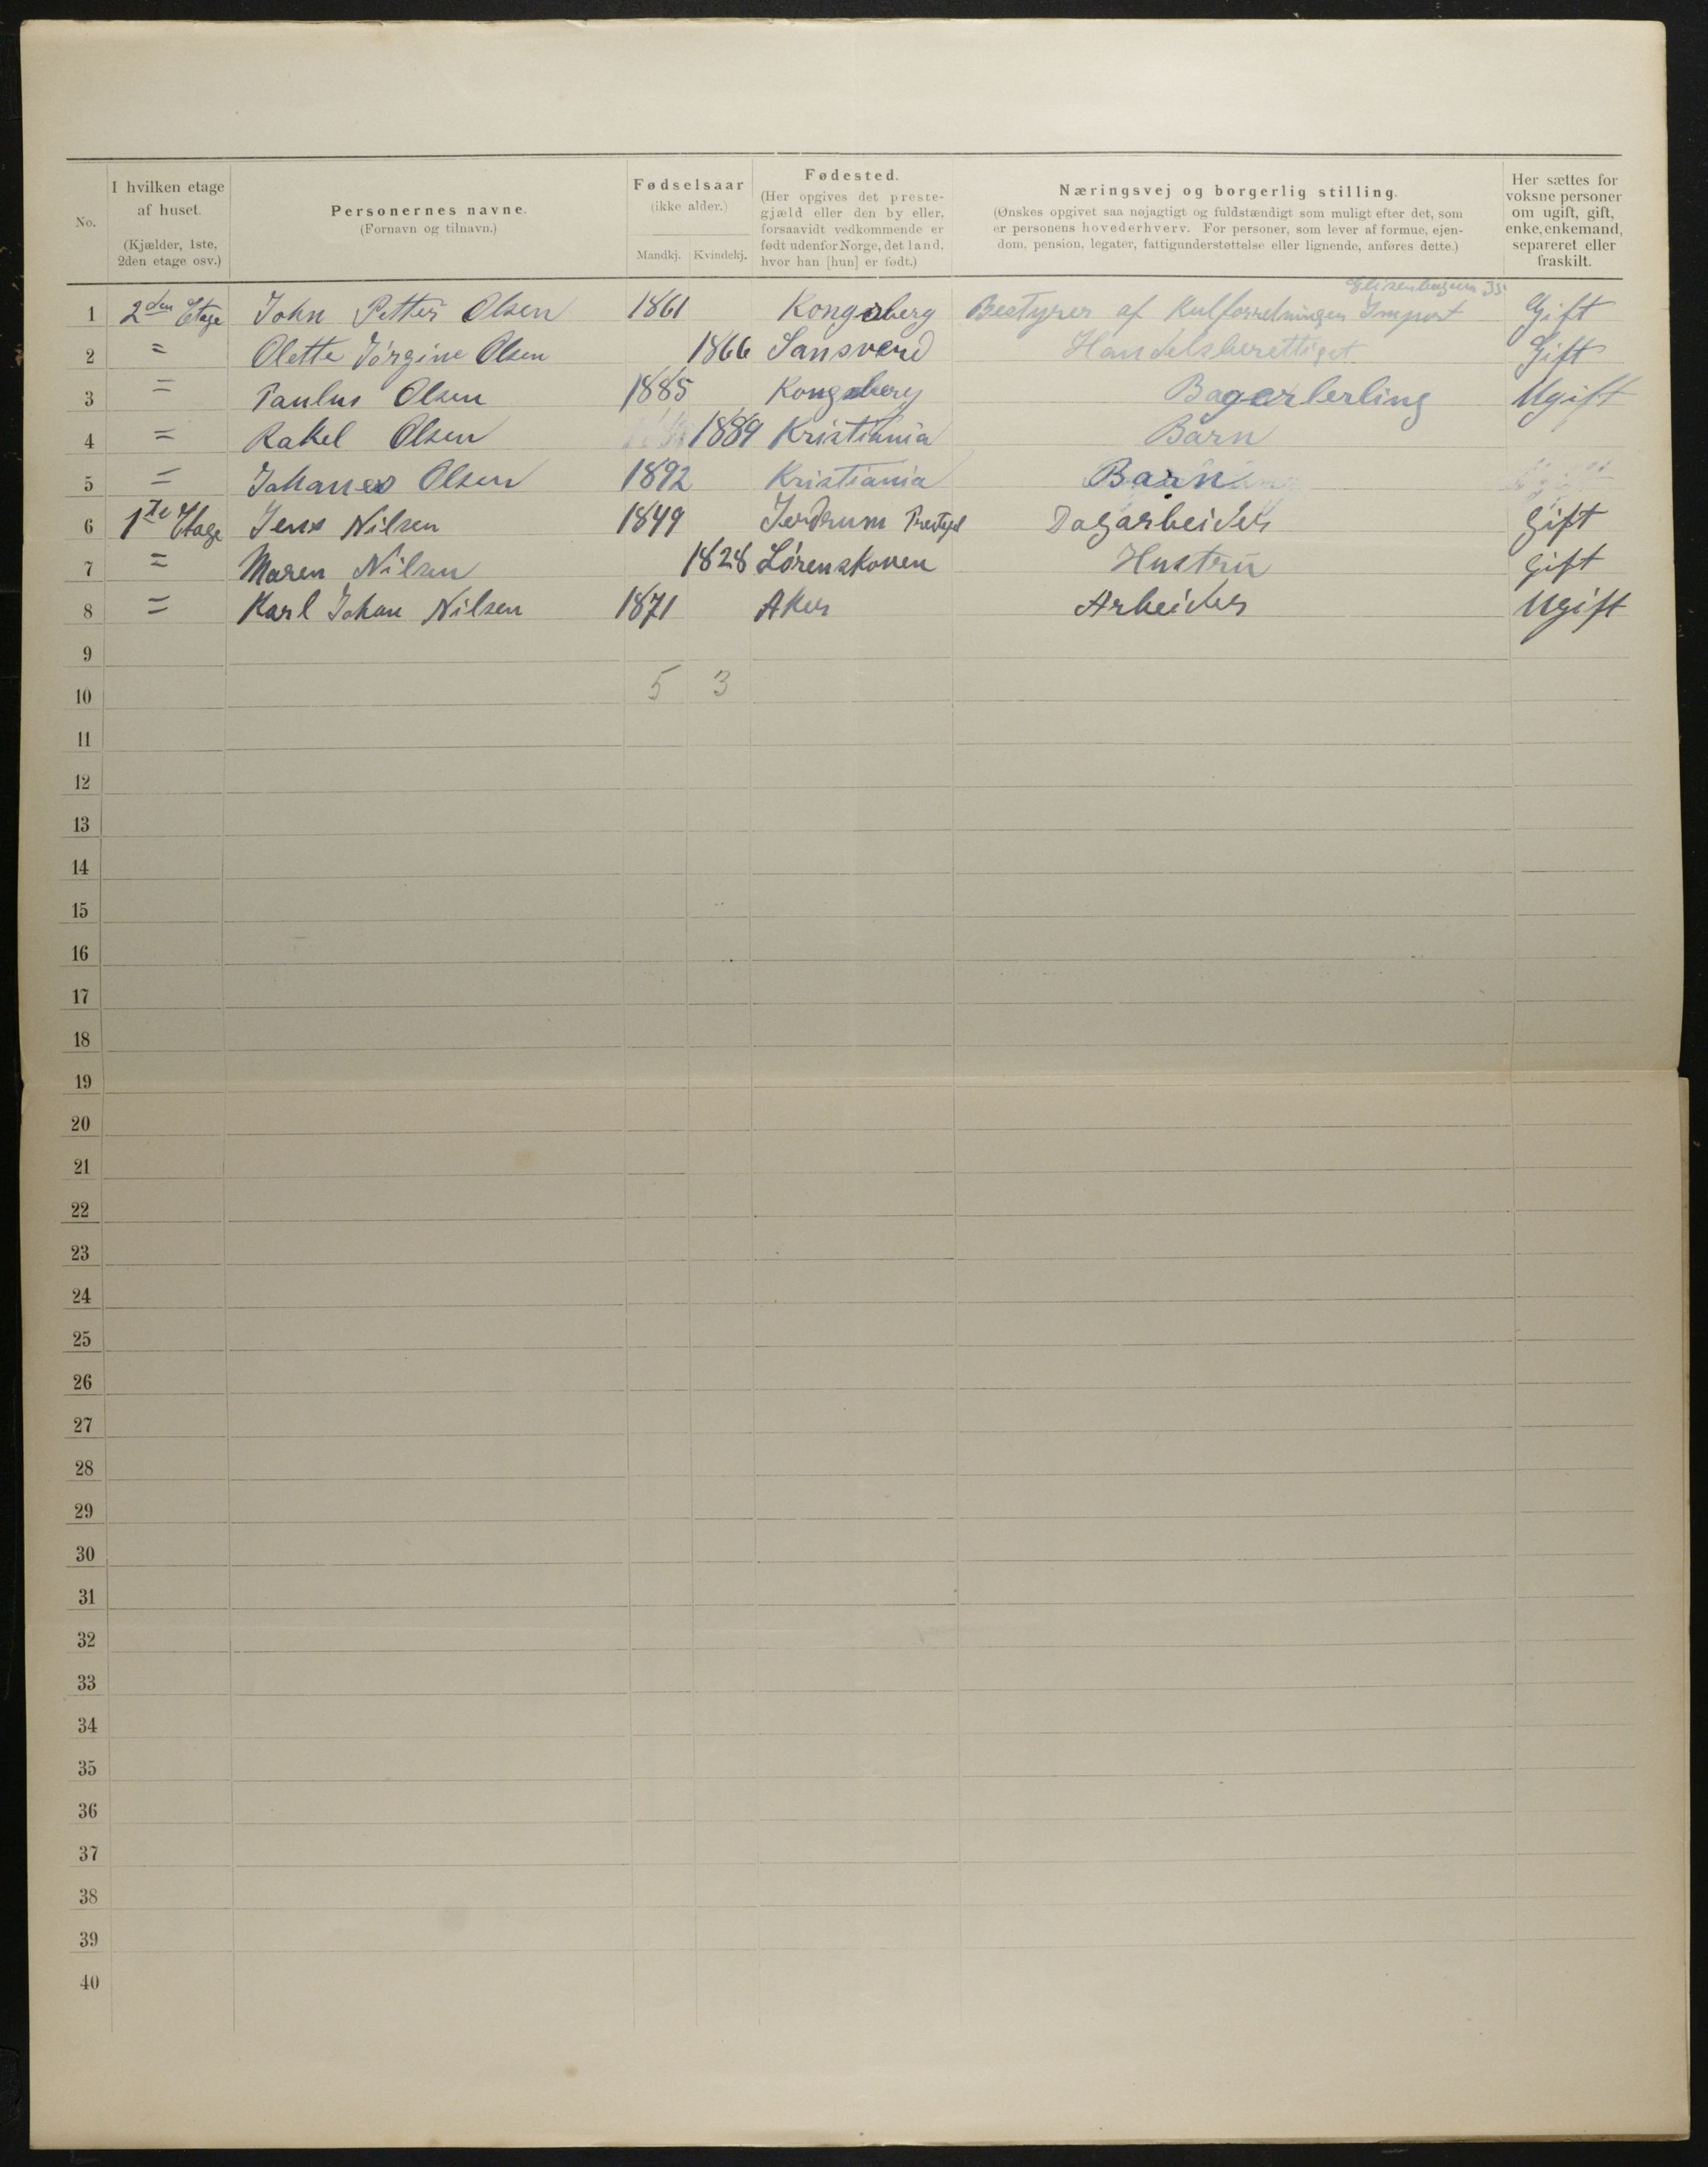 No.
I hvilken etage af huset.
(Kjælder, 1ste, 2den etage osv.)
Personernes navne.
(Fornavn og tilnavn.)
Fødselsaar
(ikke alder.)
Mandkj. Kvindekj.
Fødested.
(Her opgives det preste-
gjæld eller den by eller,
forsaavidt vedkommende er
født udenfor Norge, det land,
hvor han [hun] er født.)
Næringsvej og borgerlig stilling.
(Ønskes opgivet saa nøjagtigt og fuldstændigt som muligt efter det, som
er personens hovederhverv. For personer, som lever af formue, ejen-
dom, pension, legater, fattigunderstøttelse eller lignende, anføres dette.)
Her sættes for
voksne personer
om ugift, gift,
enke, enkemand,
separeret eller
fraskilt.
1 2den Etage John Petter Olsen 1861 Kongsberg Bestyrer af Kulforretningen Import Gift
2 = Olette Jørgine Olsen 1866 Sansverd Handelsberettiget Gift
3 = Paulus Olsen 1885 Kongsberg Bagerlerling Ugift
4 = Rakel Olsen 1889 Kristiania Barn
5 = Johanes Olsen 1892 Kristiania Barn
6 1ste Etage Jens Nilsen 1849 Jerdrum Dagarbeider Gift
7 = Maren Nilsen 1828 Lørenskoven Hustru gift
8 = Karl Johan Nilsen 1871 Aker Arbeider Ugift
9
10 5 3
11
12
13
14
15
16
17
18
19
20
21
22
23
24
25
26
27
28
29
30
31
32
33
34
35
36
37
38
39
40